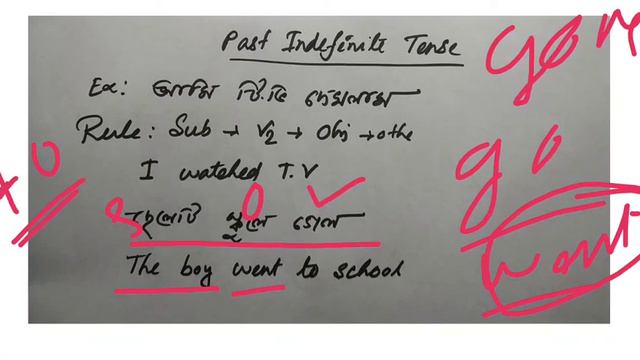 Past Indefinite Tense
Ex: আমি টি.ভি দেখলাম
Rule: Sub → V2 → Obj → othe
I watched T.V
স্কুলে গেল
The boy went to school
go
went